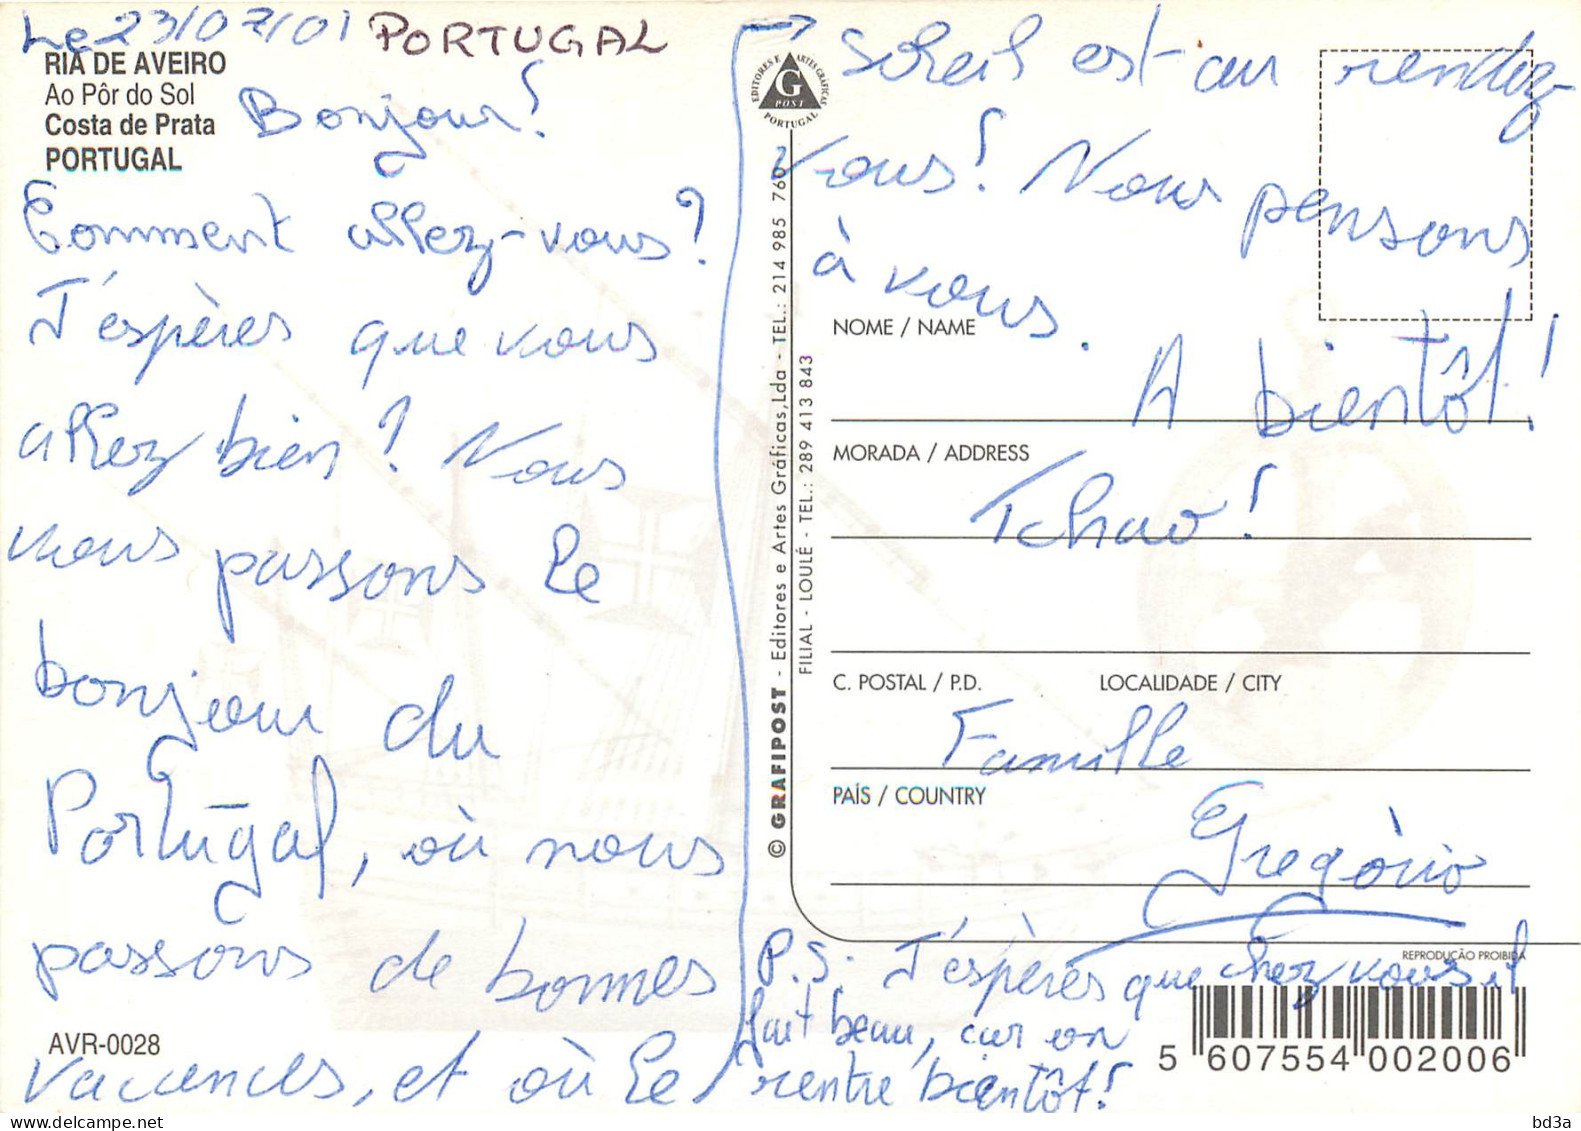 Le 23/07/01 PORTUGAL
RIA DE AVEIRO
Ao Pôr do Sol
Costa de Prata
PORTUGAL
Bonjour!
Comment allez-vous?
J'espères que vous
allez bien? Nous
vous passons le
bonjour du
Portugal, où nous
passons de bonnes
vacances, et où le
AVR-0028
soleil est au rendez-
vous! Nous pensons
à vous.
A bientôt!
Tchao!
Famille
Gregòrio
P.S. J'espères que chez vous il
fait beau, car on
rentre bientôt!
EDITORES E ARTES GRÁFICAS
G
POST
PORTUGAL
© GRAFIPOST - Editores e Artes Gráficas,Lda - TEL.: 214 985 760
FILIAL - LOULÉ - TEL.: 289 413 843
NOME / NAME
MORADA / ADDRESS
C. POSTAL / P.D. LOCALIDADE / CITY
PAÍS / COUNTRY
REPRODUÇÃO PROIBIDA
5 607554 002006
bd3a